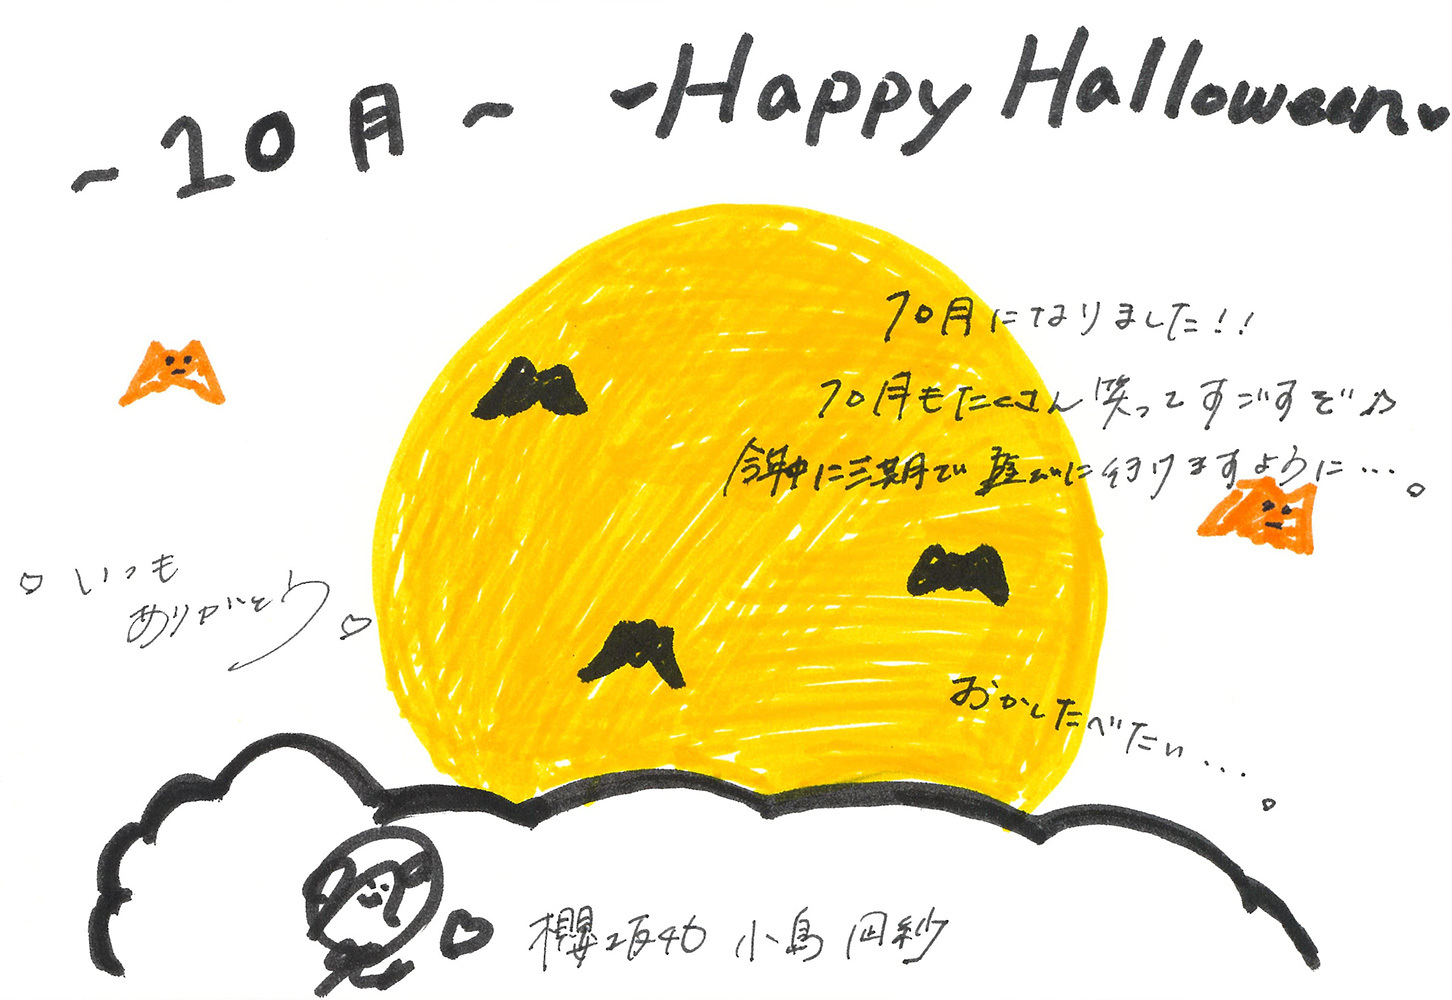 ~10月~
Happy Halloween
10月になりました!!
10月もたくさん笑ってすごすぞ♪
今年中に三期で遊びに行けますように…。
いつも
ありがとう
おかしたべたい...。
櫻坂46 小島凪紗